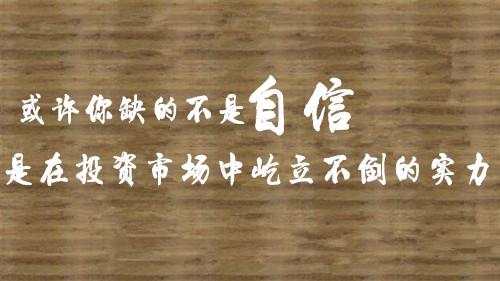 或许你缺的不是自信
是在投资市场中屹立不倒的实力